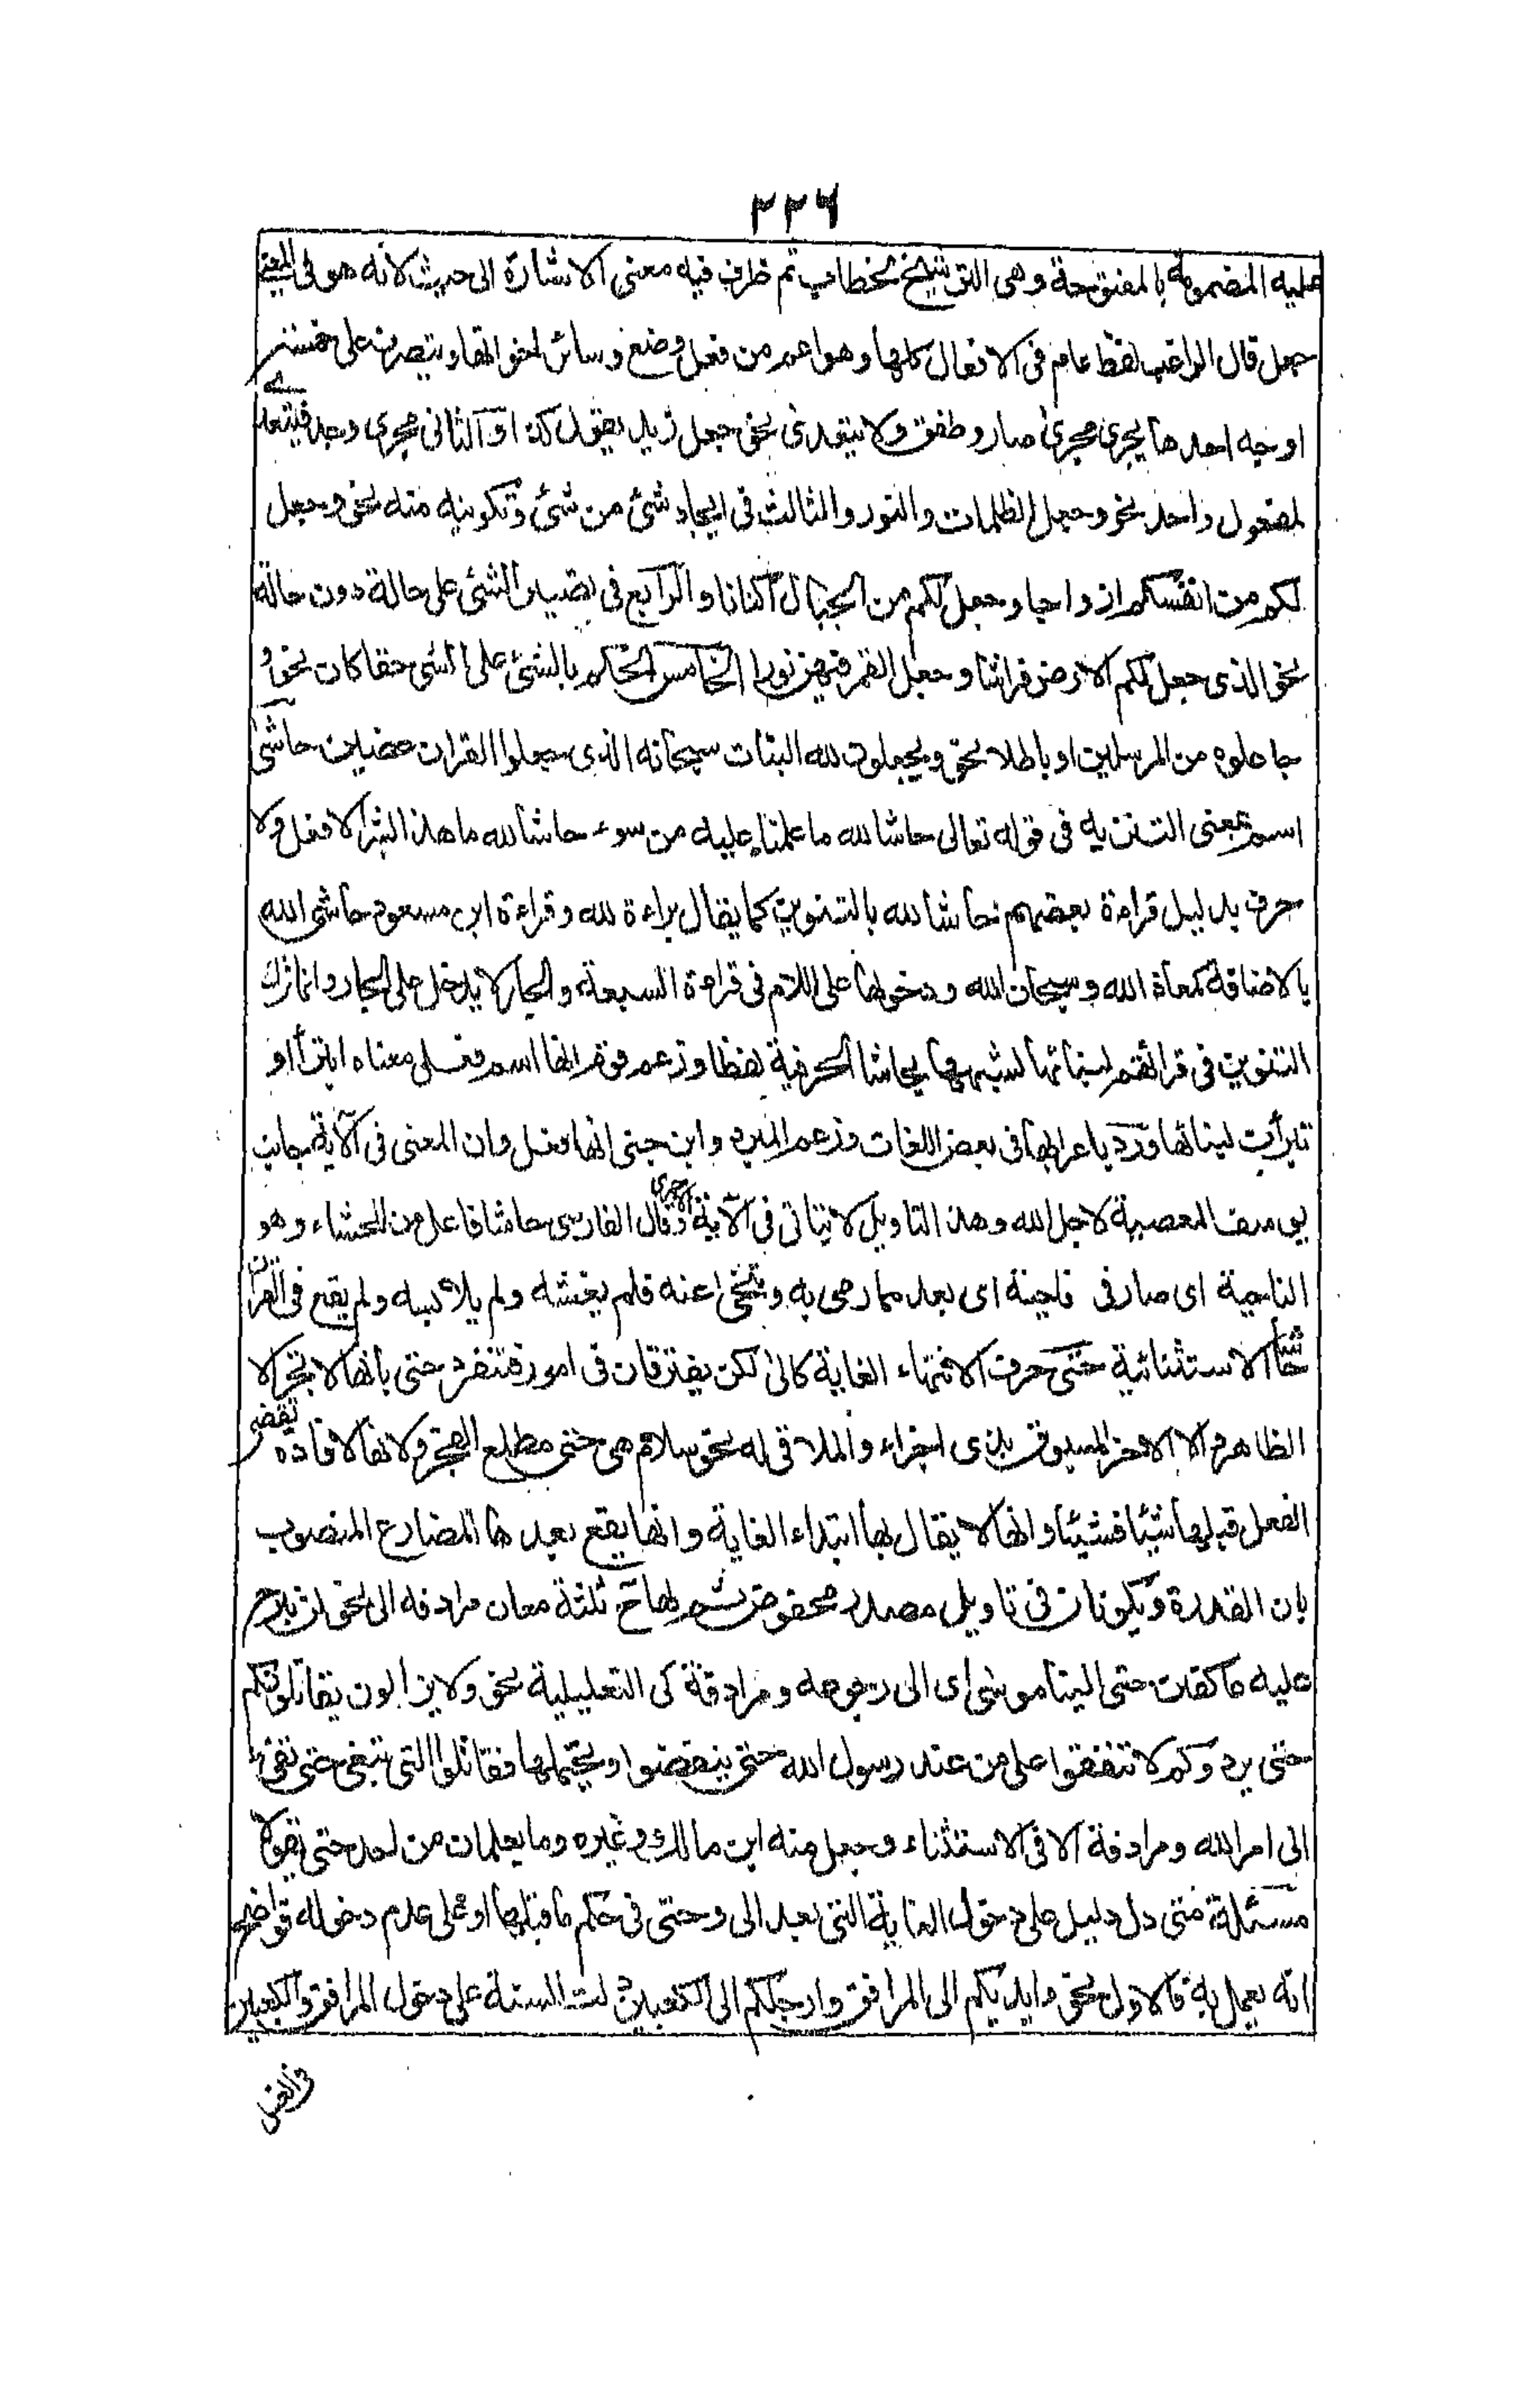 ٢٢٦
عليه المضمومة بالمفتوحة وهى التى للخطاب ثم ظرف فيه معنى الاشارة الى حيث لانه هو فى المعنى
جعل قال الراغب لفظ عام فى الافعال كلها وهو اعم من فعل وضع وسائر اخواتها ويتصرف على خمسة
اوجه احدها يجرى مجرى صار وطفق ولا يتعدى نحو جعل زيد يقول كذا و الثانى مجرى وجد فيتعدى
لمفعول واحد نحو وجعل الظلمات والنور والثالث فى ايجاد شئ من شئ وتكوينه منه نحو وجعل
لكم من انفسكم ازواجا وجعل لكم من الجبال اكنانا والرابع فى تصيير الشئ على حالة دون حالة
نحو الذى جعل لكم الارض فراشا وجعل القمر فيهن نورا الخامس الحكم بالشئ على الشى حقا كان نحو و
جاعلوه من المرسلين او باطلا نحو ويجعلون لله البنات سبحانه الذى جعلوا القران عضين حاشى
اسم بمعنى التنزيه فى قوله تعالى حاشا لله ما علمنا عليه من سوء حاشا لله ما هذا ابشرا لا فعل ولا
حرف بدليل قراءة بعضهم حاشا لله بالتنوين كما يقال براءة لله وقراءة ابن مسعود حاشى الله
بالاضافة كمعاذ الله وسبحان الله ودخولها على اللام فى قراءة السبعة والجار لا يدخل على الجار وانما ترك
التنوين فى قرائتهم لبنائها لشبهها بحاشا الحرفية لفظا وزعم قوم انها اسم فعل معناه اتبرأ او
تبرأت لبنائها ورد باعرابها فى بعض اللغات وزعم المبرد وابن جنى انها فعل وان المعنى فى الآية جانب
يوسف المعصية لاجل الله وهذا التاويل لا يتاتى فى الآية الاخرى وقال الفارسى حاشا فاعل من الحشاء وهو
الناحية اى صار فى ناحية اى بعد مما رمى به وتنحى عنه فلم يغشه ولم يلابسه ولم يقع فى القرآن
حاشا الاستثنائية حتى حرف لانتهاء الغاية كالى لكن يفترقان فى امور فتنفرد حتى بانها لا تجر الا
الظاهر والا الاخر المسبوق بذى اجزاء والملاقى له نحو سلام هى حتى مطلع الفجر ولانها لافادة تقضى
الفعل قبلها شيئا فشيئا وانها لا يقال بها ابتداء الغاية وانها يقع بعدها المضارع المنصوب
بان المقدرة ويكونان فى تاويل مصدر مخفوض ثم لها ح ثلثة معان مرادفه الى نحو لن نبرح
عليه عاكفين حتى الينا موسى اى الى رجوعه ومرادفة كى التعليلية نحو ولا يزالون يقاتلونكم
حتى يردوكم لا تنفقوا على من عند رسول الله حتى ينفضوا ويحتملها فقاتلوا التى تبغى حتى تفئ
الى امر الله ومرادفة الا فى الاستثناء وجعل منه ابن مالك وغيره وما يعلمان من احد حتى يقولا
مسئلة متى دل دليل على دخول الغاية التى بعد الى وحتى فى حكم ما قبلها او على عدم دخوله فواضح
انه يعمل به فالاول نحو وايديكم الى المرافق وارجلكم الى الكعبين دلت السنة على دخول المرافق والكعبين